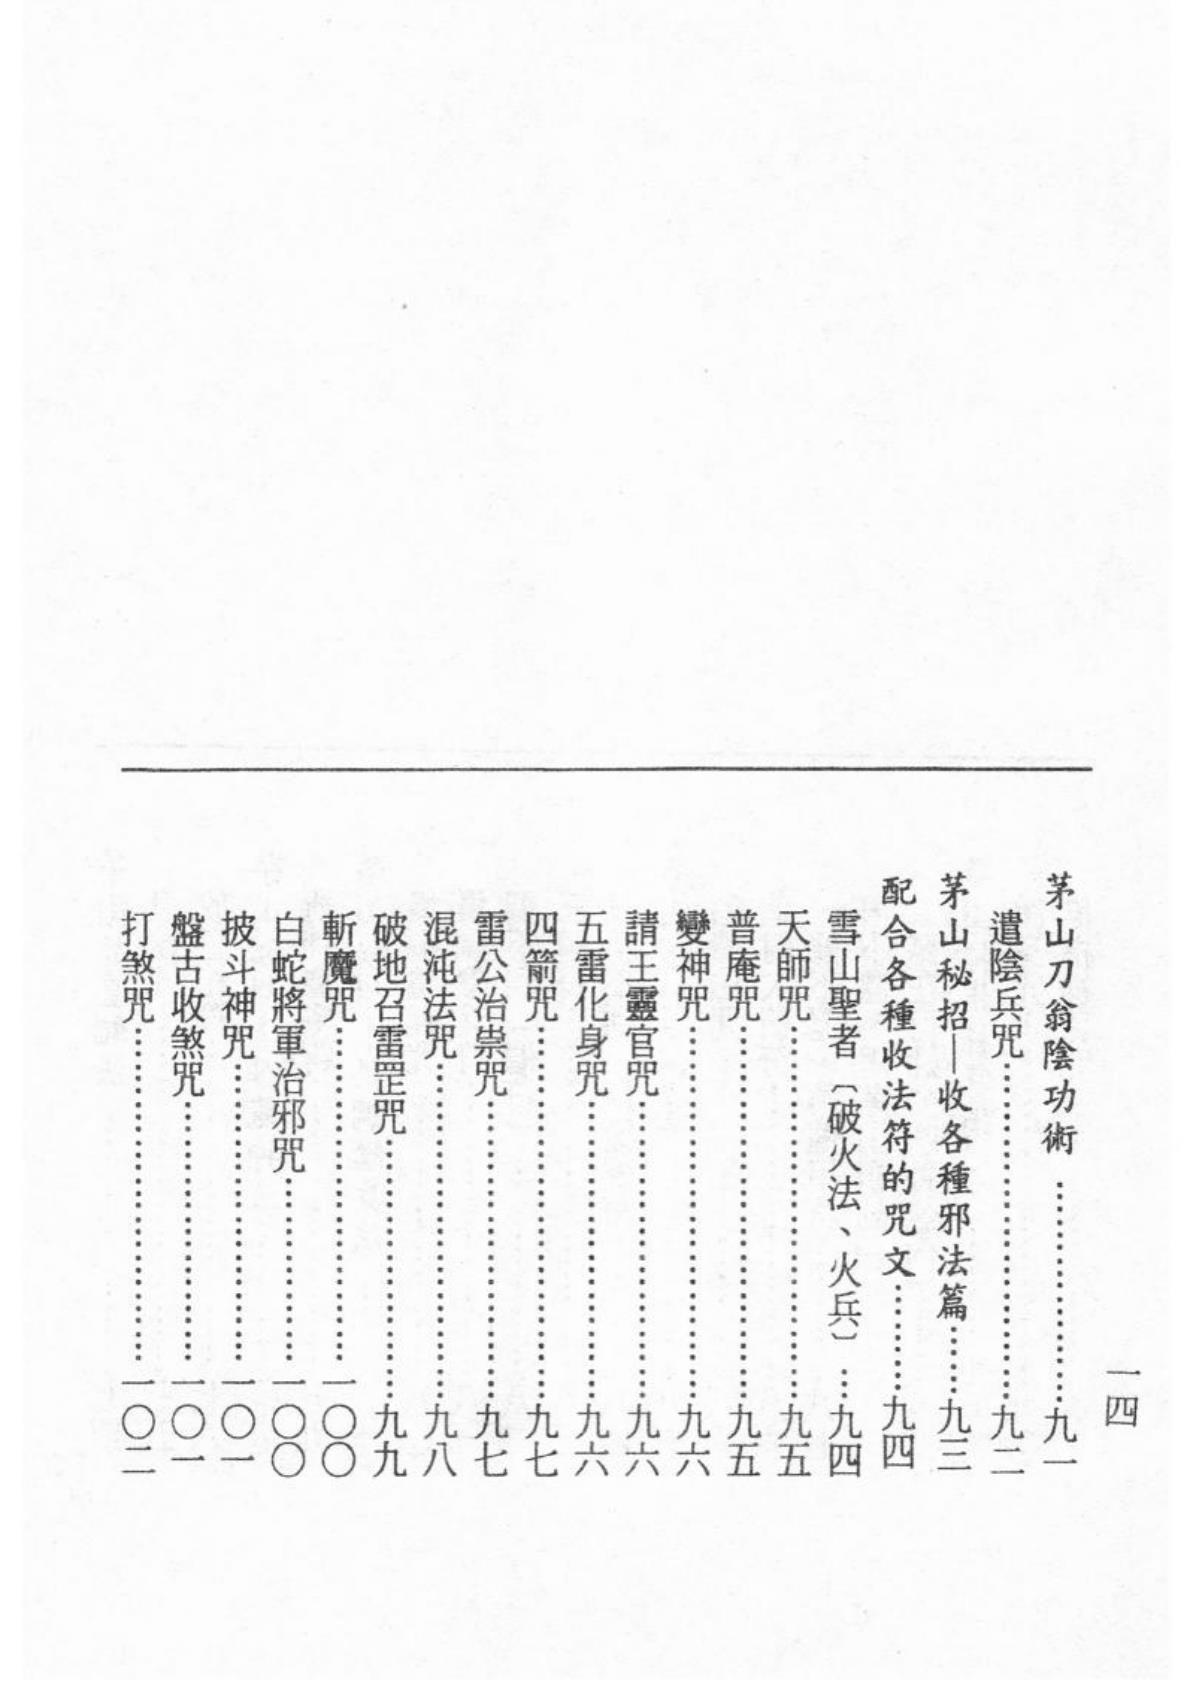 一四
茅山刀翁陰功術……………九一
遣陰兵咒……………………九二
茅山秘招—收各種邪法篇……九三
配合各種收法符的咒文………九四
雪山聖者〔破火法、火兵〕…九四
天師咒………………………九五
普庵咒………………………九五
變神咒………………………九六
請王靈官咒…………………九六
五雷化身咒…………………九六
四箭咒………………………九七
雷公治祟咒…………………九七
混沌法咒……………………九八
破地召雷罡咒………………九九
斬魔咒………………………一〇〇
白蛇將軍治邪咒……………一〇〇
披斗神咒……………………一〇一
盤古收煞咒…………………一〇一
打煞咒………………………一〇二